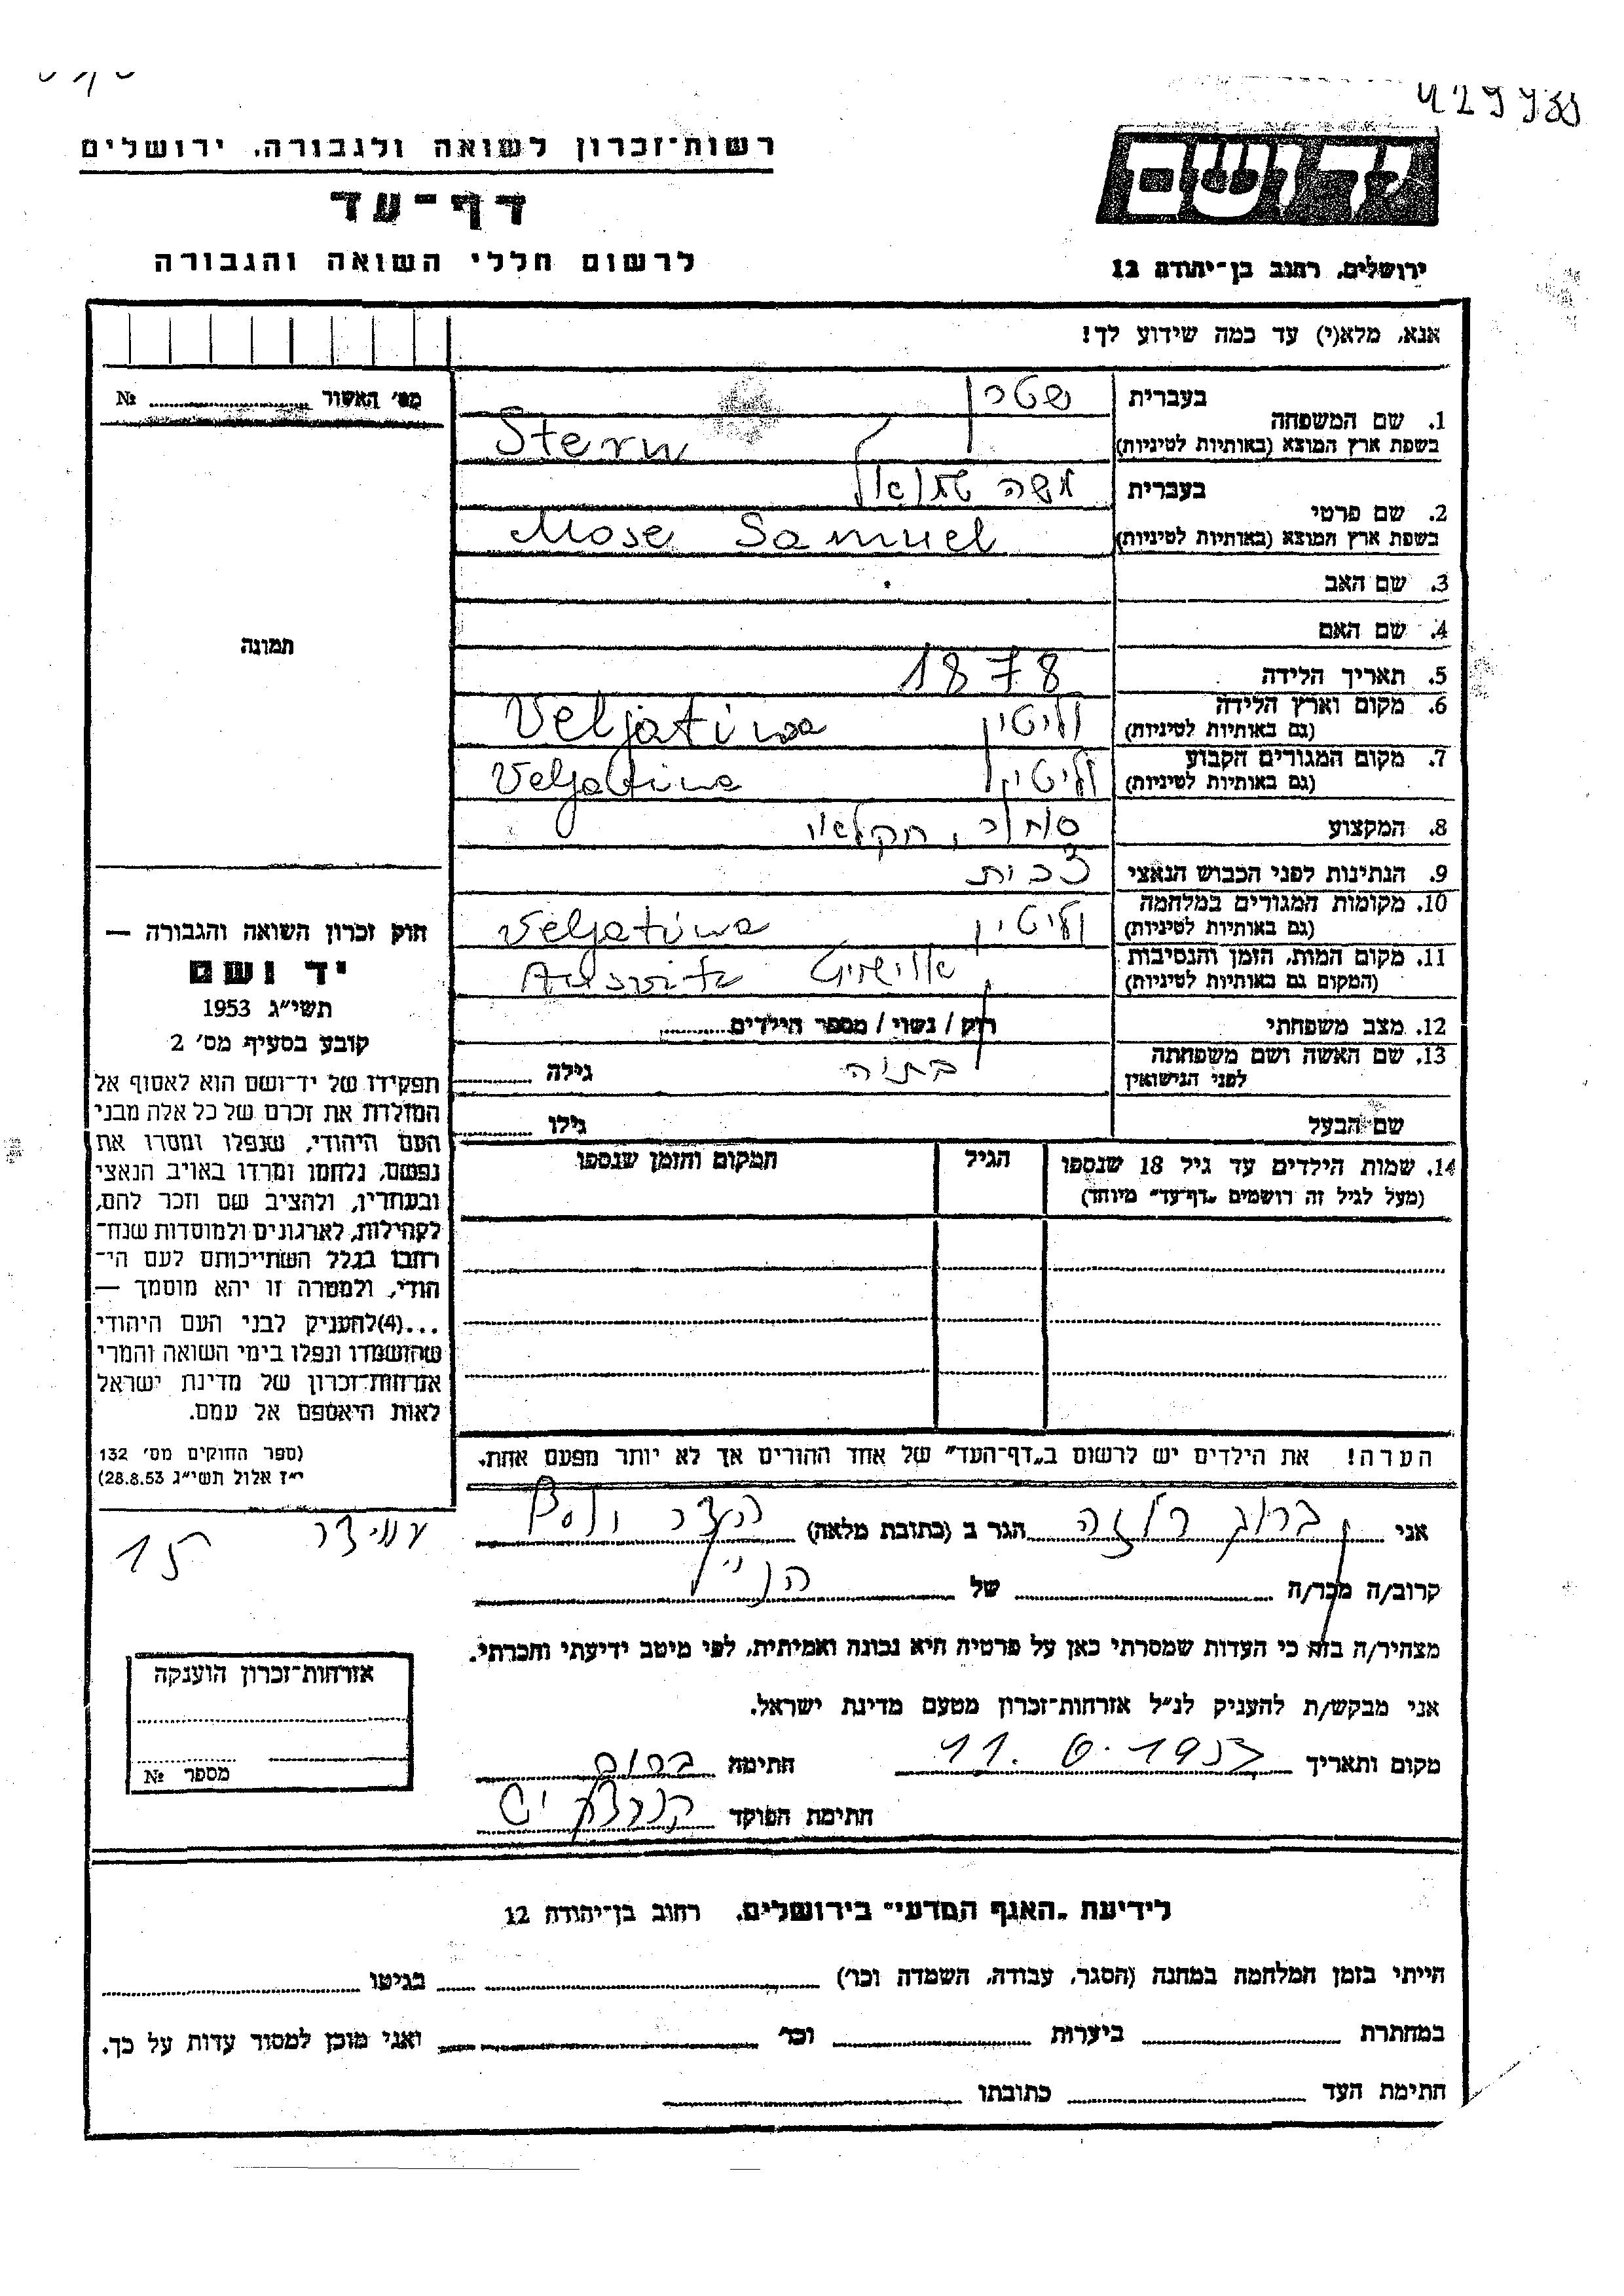 429
רשות־זכרון לשואה ולגבורה, ירושלים
דף־עד
לרשום חללי השואה והגבורה
יד ושם
ירושלים, רחוב בן־יהודה 12
אנא, מלא(י) עד כמה שידוע לך!
מס׳ האשור № 
1. שם המשפחה
בעברית שטרן
בשפת ארץ המוצא (באותיות לטיניות) Stern
2. שם פרטי
בעברית משה שמואל
בשפת ארץ המוצא (באותיות לטיניות) Mose Samuel
3. שם האב
4. שם האם
5. תאריך הלידה 1878
6. מקום וארץ הלידה
(גם באותיות לטיניות) וליטין Veljatina
7. מקום המגורים הקבוע
(גם באותיות לטיניות) וליטין Veljatina
8. המקצוע סוחר, חקלאי
9. הנתינות לפני הכבוש הנאצי צכית
10. מקומות המגורים במלחמה
(גם באותיות לטיניות) וליטין Veljatina
11. מקום המות, הזמן והנסיבות
(המקום גם באותיות לטיניות) אוישויץ
12. מצב משפחתי רווק / נשוי / מספר הילדים
13. שם האשה ושם משפחתה
לפני הנישואין בתיה גילה
שם הבעל גילו
14. שמות הילדים עד גיל 18 שנספו
(מעל לגיל זה רושמים „דף־עד״ מיוחד)
הגיל
המקום והזמן שנספו
תמונה
חוק זכרון השואה והגבורה —
יד ושם
תשי״ג 1953
קובע בסעיף מס׳ 2
תפקידו של יד־ושם הוא לאסוף אל
המולדת את זכרם של כל אלה מבני
העם היהודי, שנפלו ומסרו את
נפשם, נלחמו ומרדו באויב הנאצי
ובעוזריו, ולהציב שם וזכר להם,
לקהילות, לארגונים ולמוסדות שנח־
רחבו בגלל השתייכותם לעם הי־
הודי, ולמטרה זו יהא מוסמך —
...(4)להעניק לבני העם היהודי
שהושמדו ונפלו בימי השואה והמרי
אזרחות־זכרון של מדינת ישראל
לאות היאספם אל עמם.
(ספר החוקים מס׳ 132
י״ז אלול תשי״ג 28.8.53)
הערה! את הילדים יש לרשום ב„דף־העד״ של אחד ההורים אך לא יותר מפעם אחת.
אני ברוין רוזה הגר ב (כתובת מלאה) 15
קרוב/ה מכר/ה של הנ״ל
מצהיר/ה בזה כי העדות שמסרתי כאן על פרטיה היא נכונה ואמיתית, לפי מיטב ידיעתי והכרתי.
אני מבקש/ת להעניק לנ״ל אזרחות־זכרון מטעם מדינת ישראל.
מקום ותאריך חתימה
חתימת הפוקד
אזרחות־זכרון הוענקה
מספר №
לידיעת „האגף המדעי״ בירושלים, רחוב בן־יהודה 12
הייתי בזמן המלחמה במחנה (הסגר, עבודה, השמדה וכו׳) בגיטו
במחתרת ביערות וכו׳ ואני מוכן למסור עדות על כך.
חתימת העד כתובתו